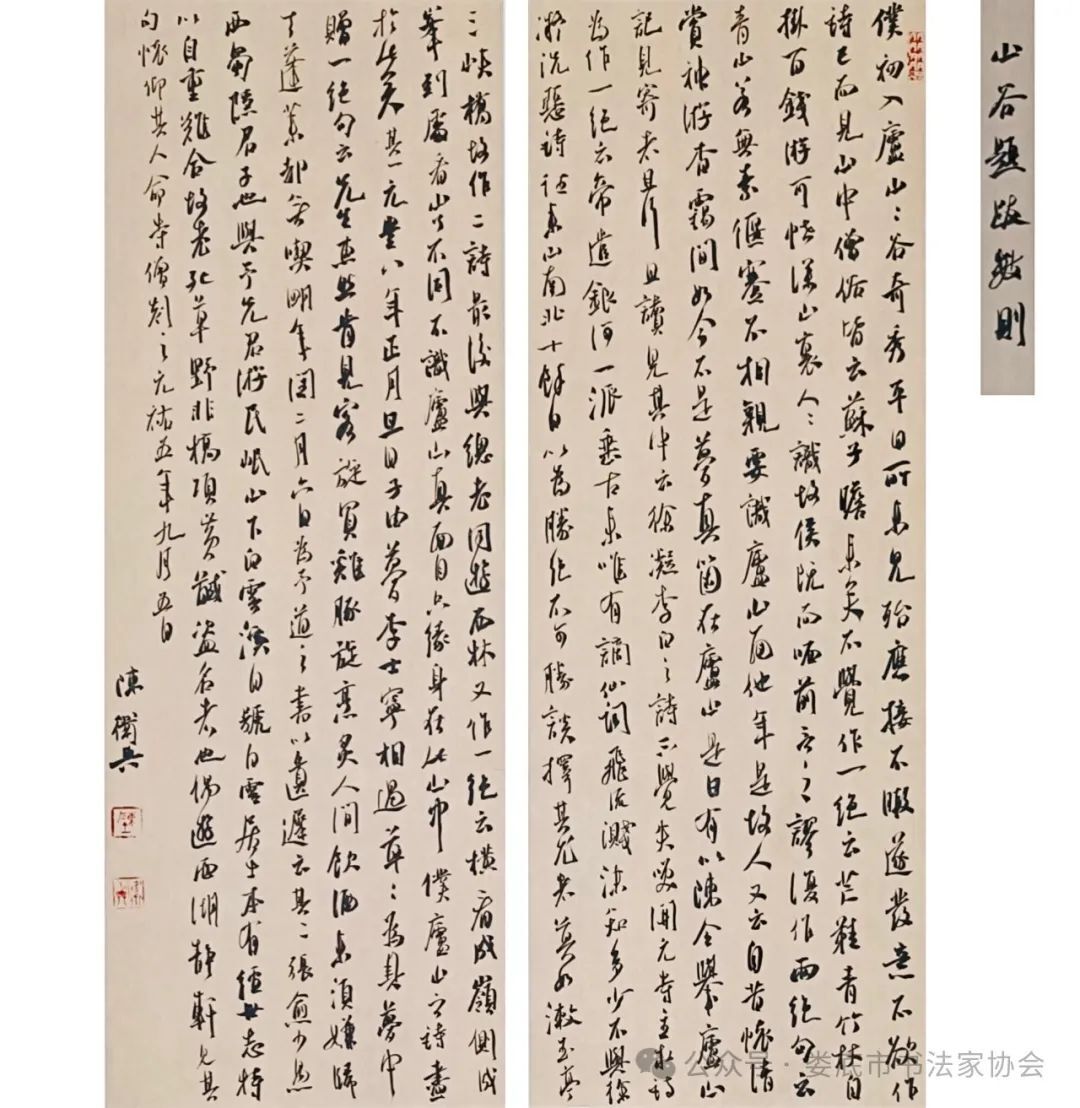 山谷题跋数則
僕初入廬山〻谷奇秀平日所未見殆應接不暇遂發意不欲作
詩已而見山中僧俗皆云蘇子瞻來矣不覺作一絕云芒鞋青竹杖自
掛百錢游可怪深山裏人〻識故侯既而哂前言之謬復作兩絕句云
青山若無素偃蹇不相親要識廬山面他年是故人又云自昔懷清
賞神游杳靄間如今不是夢真箇在廬山是日有以陳令舉廬山
記見寄者且行且讀見其中云徐凝李白之詩不覺失笑開元寺主求詩
為作一絕云帝遣銀河一派垂古來唯有謫仙詞飛流濺沫知多少不與徐
凝洗惡詩往來山南北十餘日以為勝絕不可勝談擇其尤者莫如漱玉亭
三峽橋故作二詩最後與總老同遊西林又作一絕云橫看成嶺側成
峯到處看山了不同不識廬山真面目只緣身在此山中僕廬山之詩盡
於此矣其一元豐八年正月旦日子由夢李士寧相過草〻為具夢中
贈一絕句云先生惠然肯見客旋買雞豚旋烹炙人間飲酒未須嫌歸
去蓬萊却無喫明年閏二月六日為予道之書以遺遲云其二張愈少愚
西蜀隱君子也與予先君游岷山下白雲溪自號白雲居士本有經世志特
以自重難合故老死草野非槁項黃馘盜名者也偶遊西湖靜軒見其
句懷仰其人命寺僧刻之元祐五年九月五日
陳
公众号·娄底市书法家协会